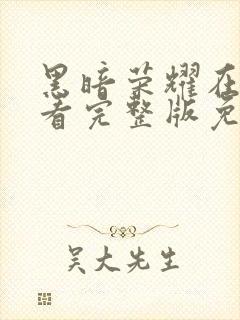 黑暗荣耀在
看完整版免
吴大先生